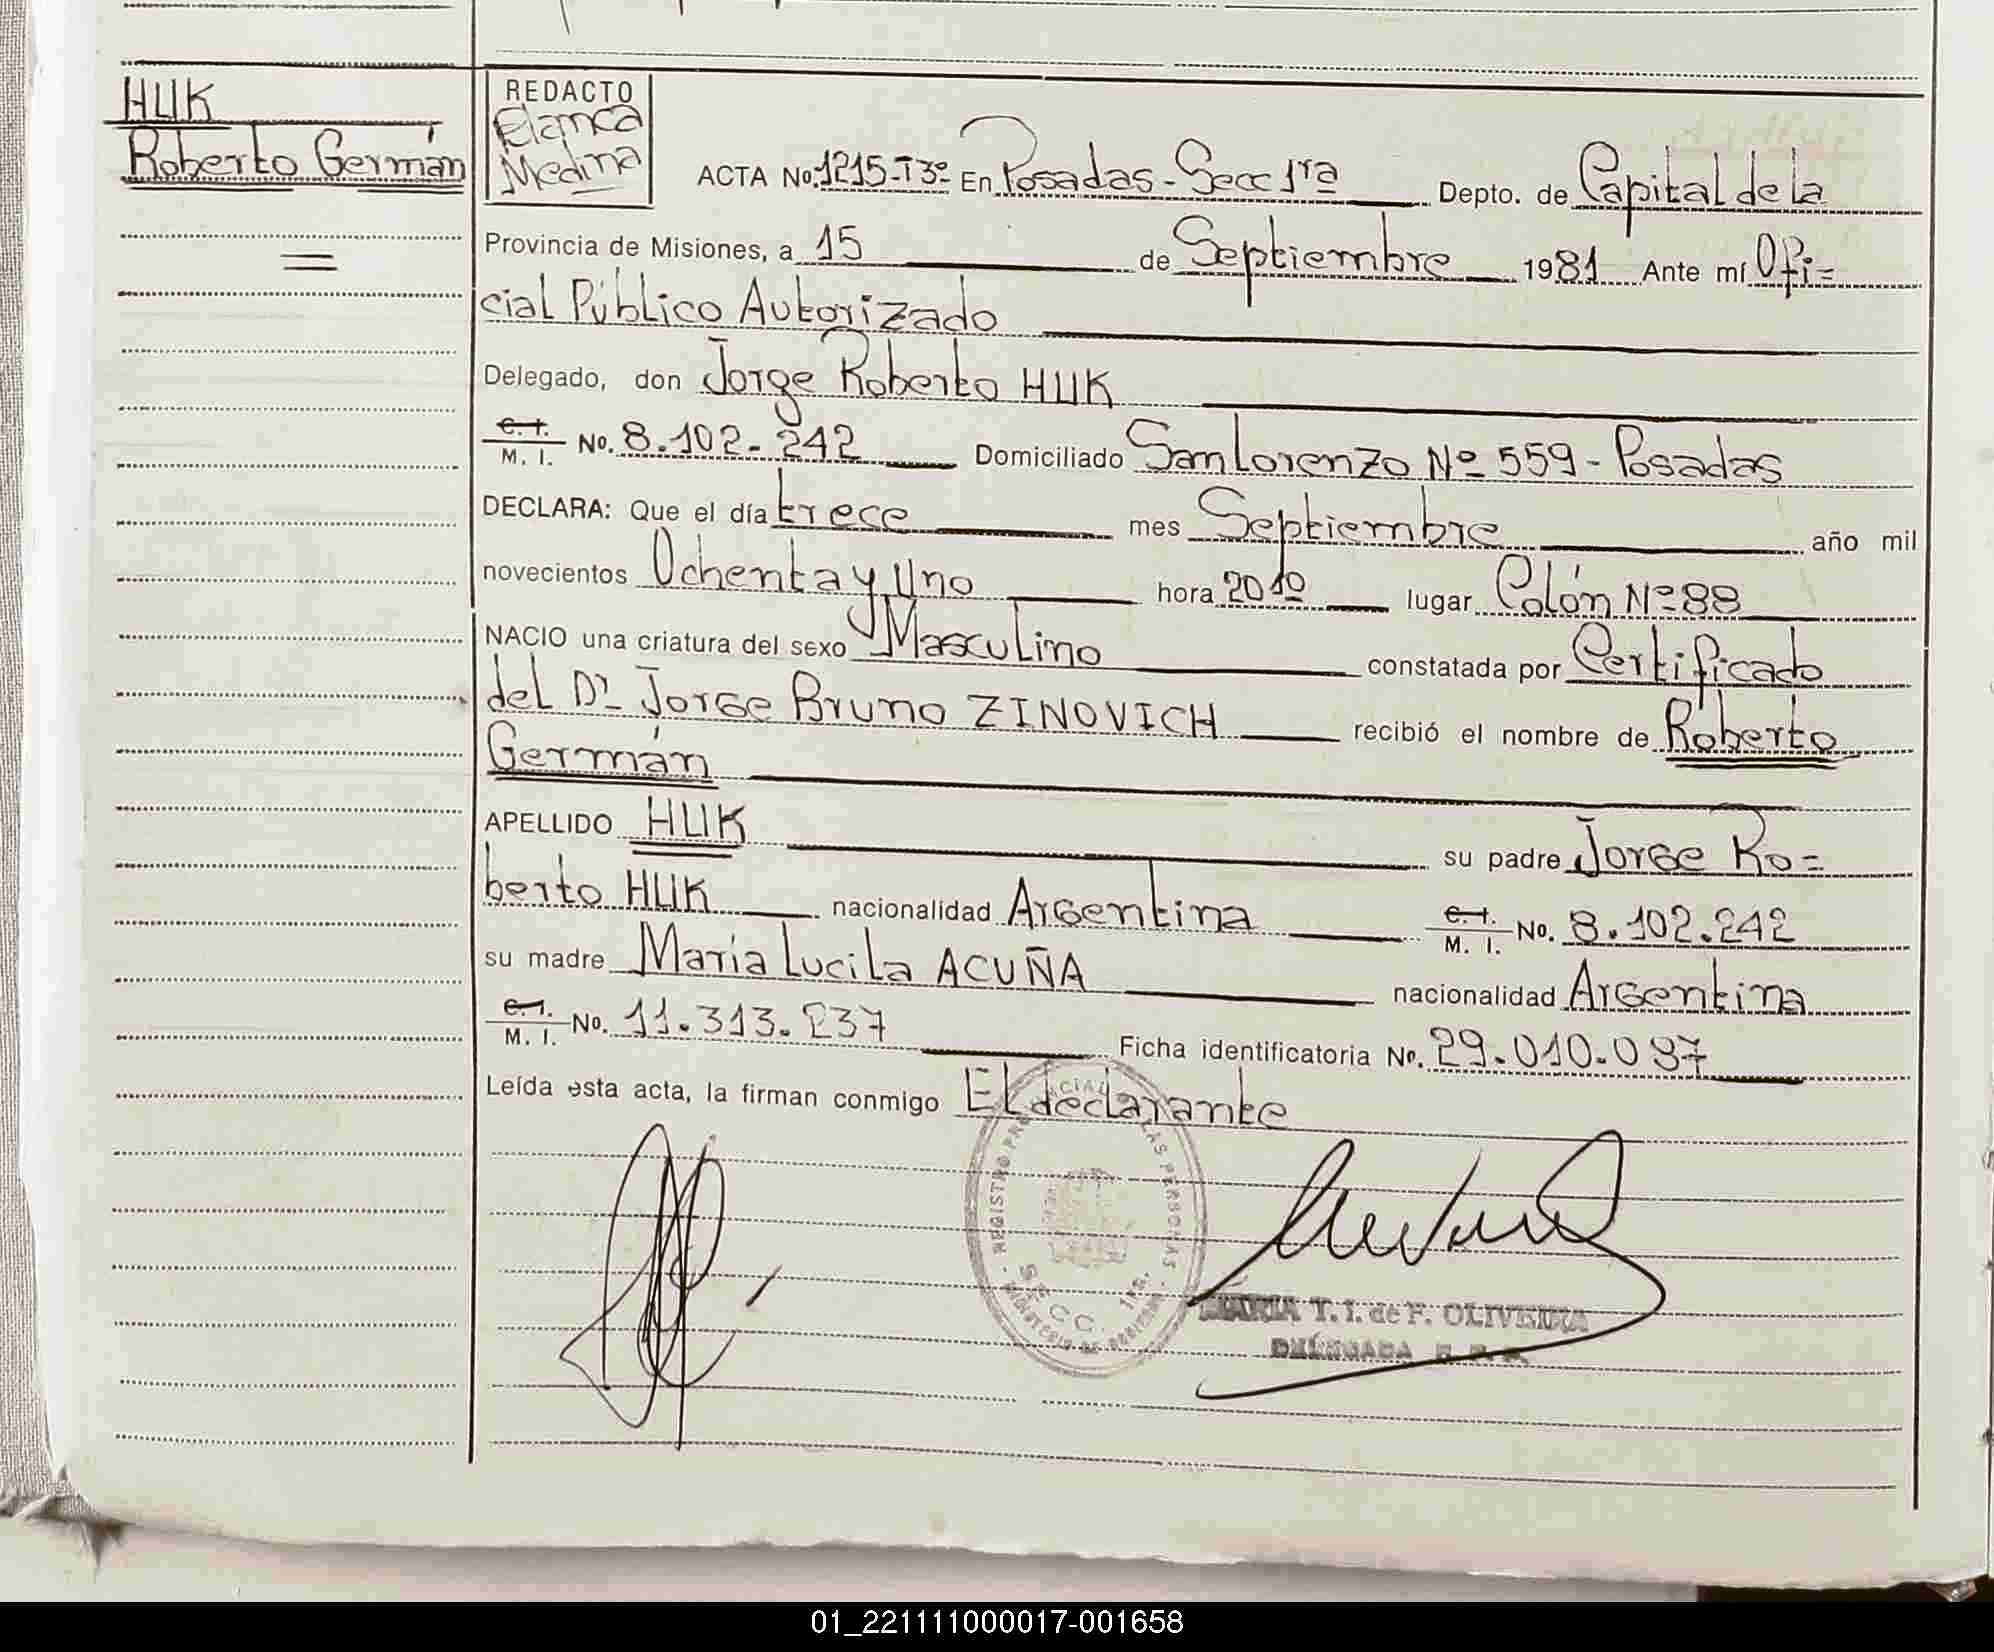 HUK
Roberto Germán
REDACTO
Blanca
Medina
ACTA No. 1215-T3º En Posadas-Secc 1ra Depto. de Capital de la
Provincia de Misiones, a 15 de Septiembre 1981 Ante mí Ofi=
cial Público Autorizado
Delegado, don Jorge Roberto HUK
C. I.
M. I. No. 8.102.242 Domiciliado San Lorenzo Nº 559-Posadas
DECLARA: Que el día trece mes Septiembre año mil
novecientos Ochenta y Uno hora 20 10 lugar Colón Nº 88
NACIO una criatura del sexo Masculino constatada por Certificado
del Dr Jorge Bruno ZINOVICH recibió el nombre de Roberto
Germán
APELLIDO HUK su padre Jorge Ro=
berto HUK nacionalidad Argentina C. I.
M. I. No. 8.102.242
su madre María Lucila ACUÑA nacionalidad Argentina
C. I.
M. I. No. 11.313.237 Ficha identificatoria No. 29.010.087
Leída esta acta, la firman conmigo El declarante
REGISTRO LAS PERSONAS
SECC. 1ra.
MARIA T. I. de F. OLIVEIRA
DELEGADA
01_221111000017-001658